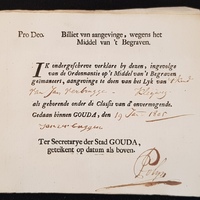 Pro Deo. Billiet van aangevinge, wegens het
Middel van 't Begraven.
IK ondergeschreve verklare by dezen, ingevolge
van de Ordonnantie op 't Middel van 't Begraven,
geëmaneert, aangevinge te doen van het Lyk van 't kind
van Jan
als gehorende onder de Classis van d'onvermogende.
Gedaan binnen GOUDA, den 19
Ter Secretarye der Stad GOUDA,
geteikent op datum als boven.